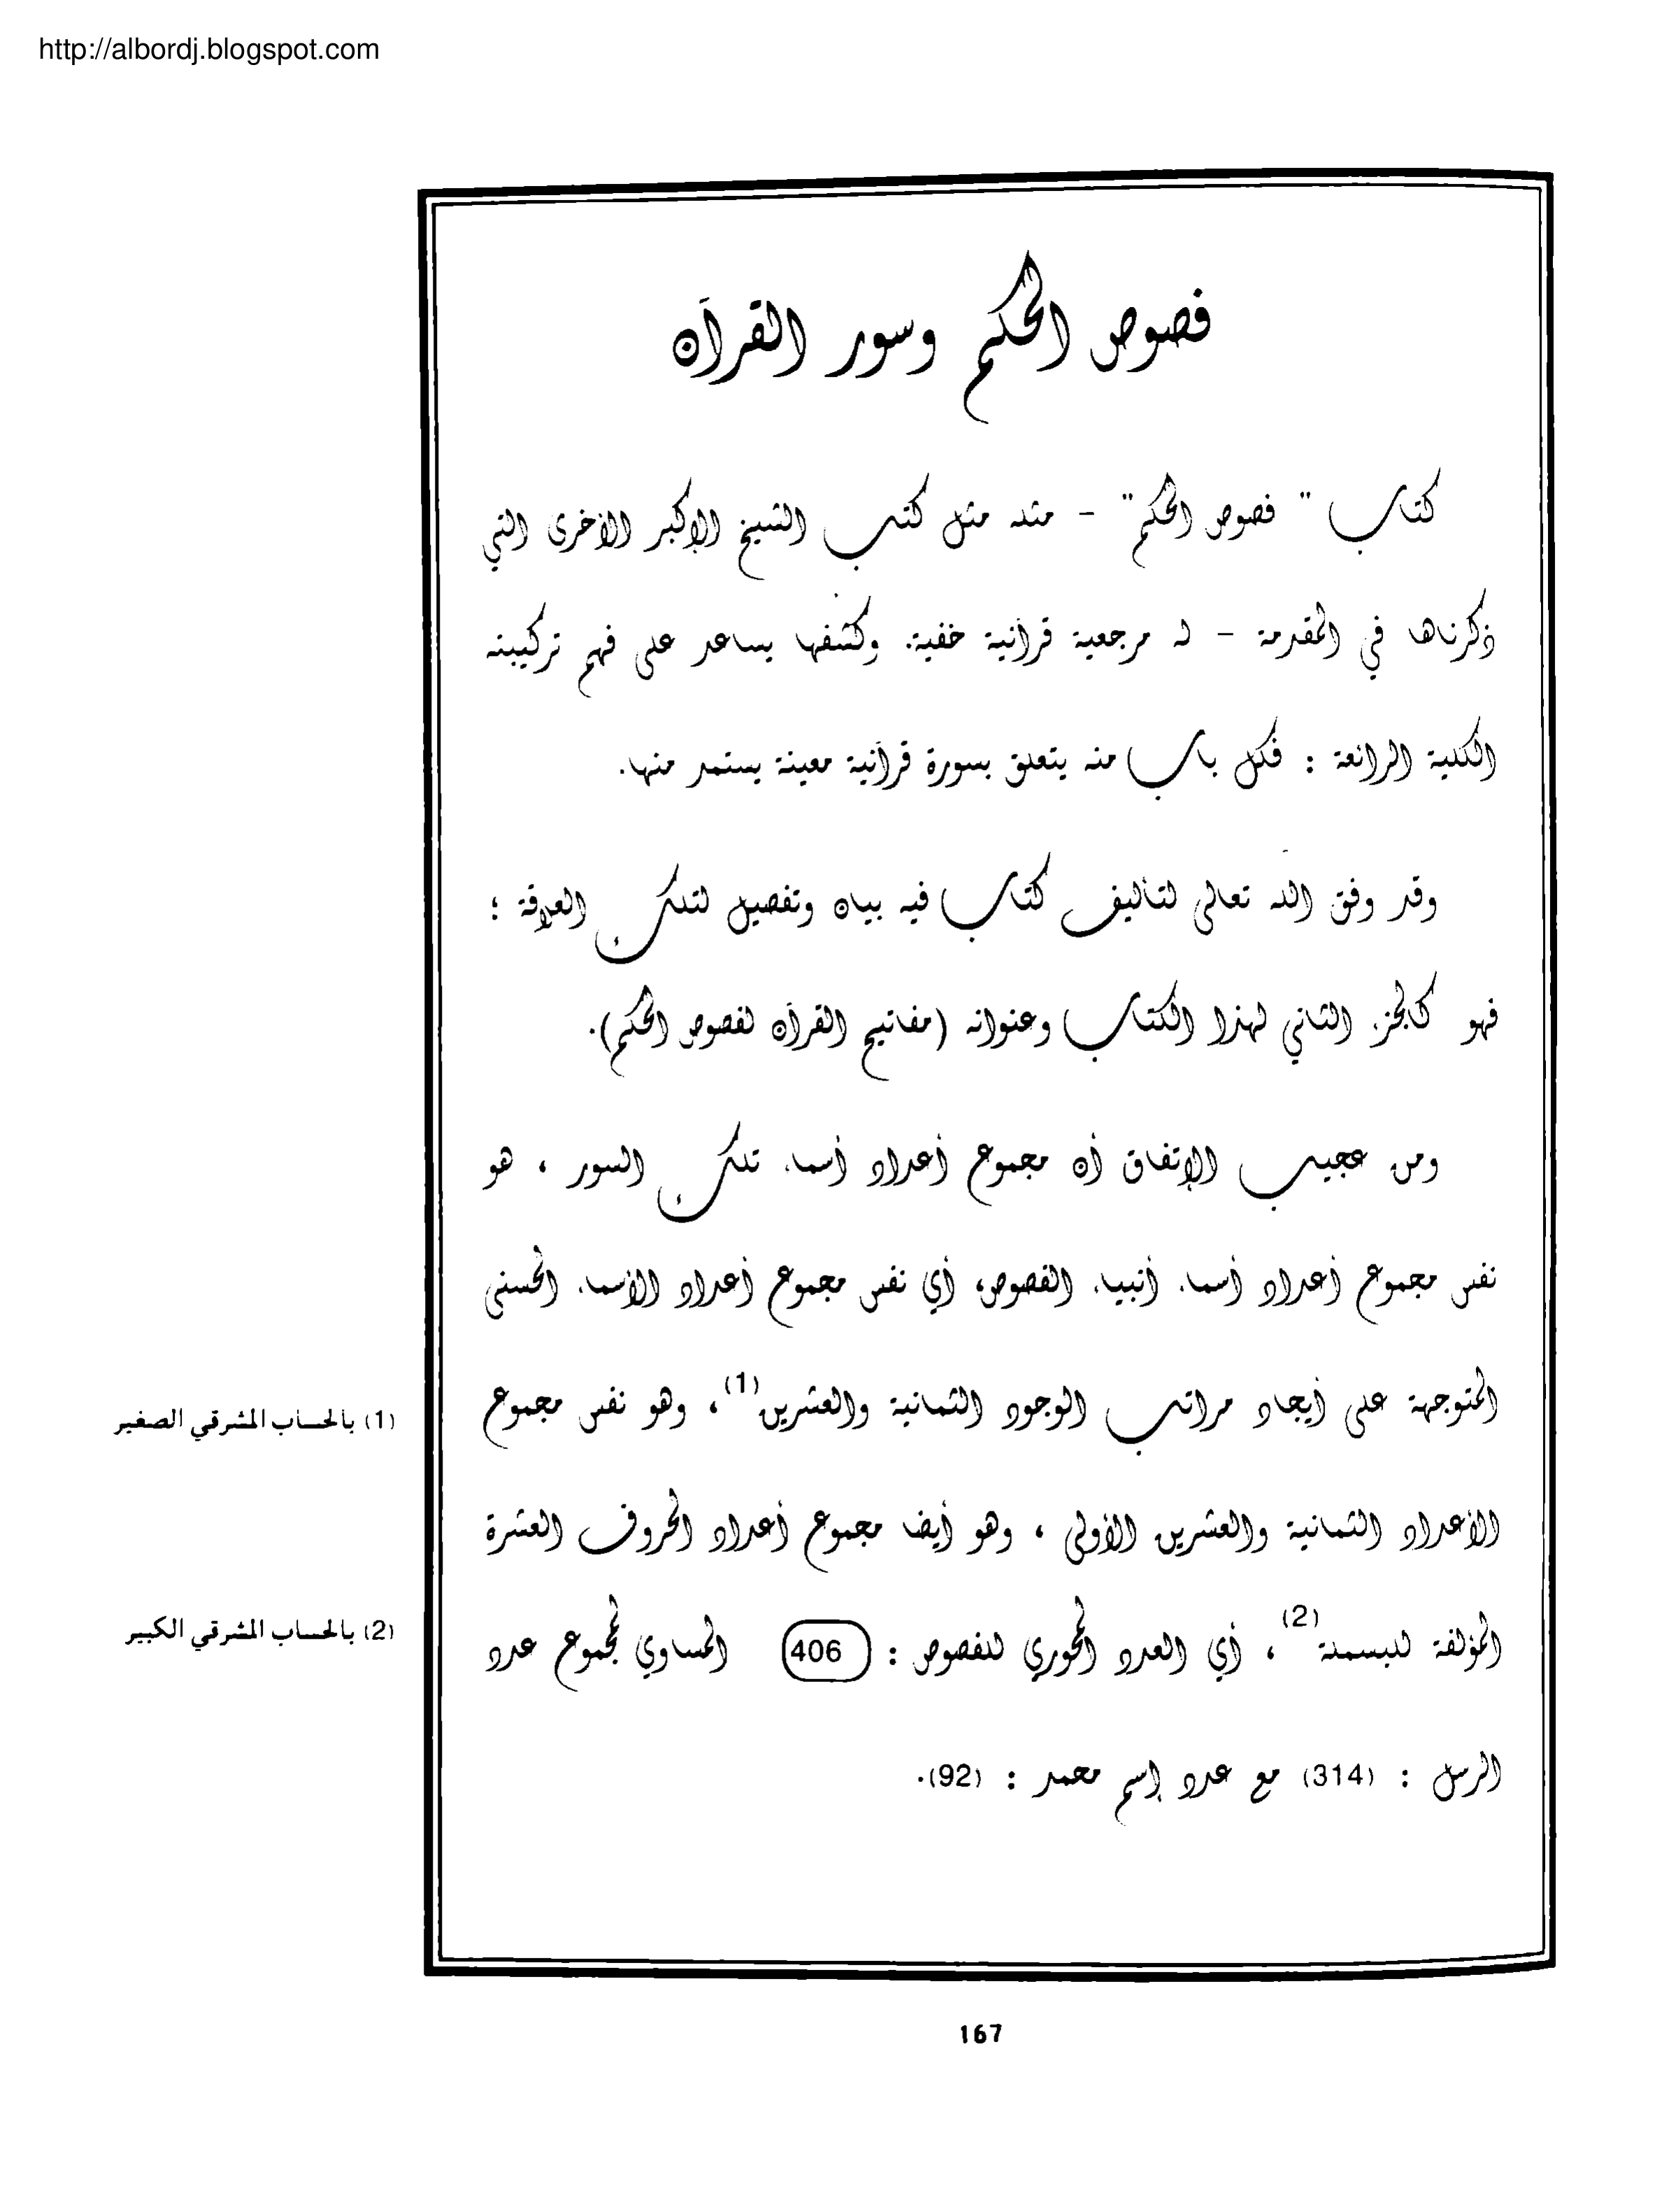 http://albordj.blogspot.com
فصوص الحكم وسور القرآن
كتاب " فصوص الحكم" - مثله مثل كتب الشيخ الإكبر الأخرى التي
ذكرناها في المقدمة - له مرجعية قرآنية خفية. وكشفها يساعد على فهم تركيبته
الكلية الرائعة : فكل باب منه يتعلق بسورة قرآنية معينة يستمد منها.
وقد وفق الله تعالى لتأليف كتاب فيه بيان وتفصيل لتلك العلاقة ؛
فهو كالجزء الثاني لهذا الكتاب وعنوانه (مفاتيح القرآن لفصوص الحكم).
ومن عجيب الإتفاق أن مجموع أعداد أسماء تلك السور ، هو
نفس مجموع أعداد أسماء أنبياء الفصوص، أي نفس مجموع أعداد الأسماء الحسنى
المتوجهة على أيجاد مراتب الوجود الثمانية والعشرين(1)، وهو نفس مجموع
(1) بالحساب المشرقي الصغير
الأعداد الثمانية والعشرين الأولى ، وهو أيضا مجموع أعداد الحروف العشرة
المؤلفة للبسملة(2)، أي العدد المحوري للفصوص : 406 المساوي لمجموع عدد
(2) بالحساب المشرقي الكبير
الرسل : (314) مع عدد إسم محمد : (92).
167